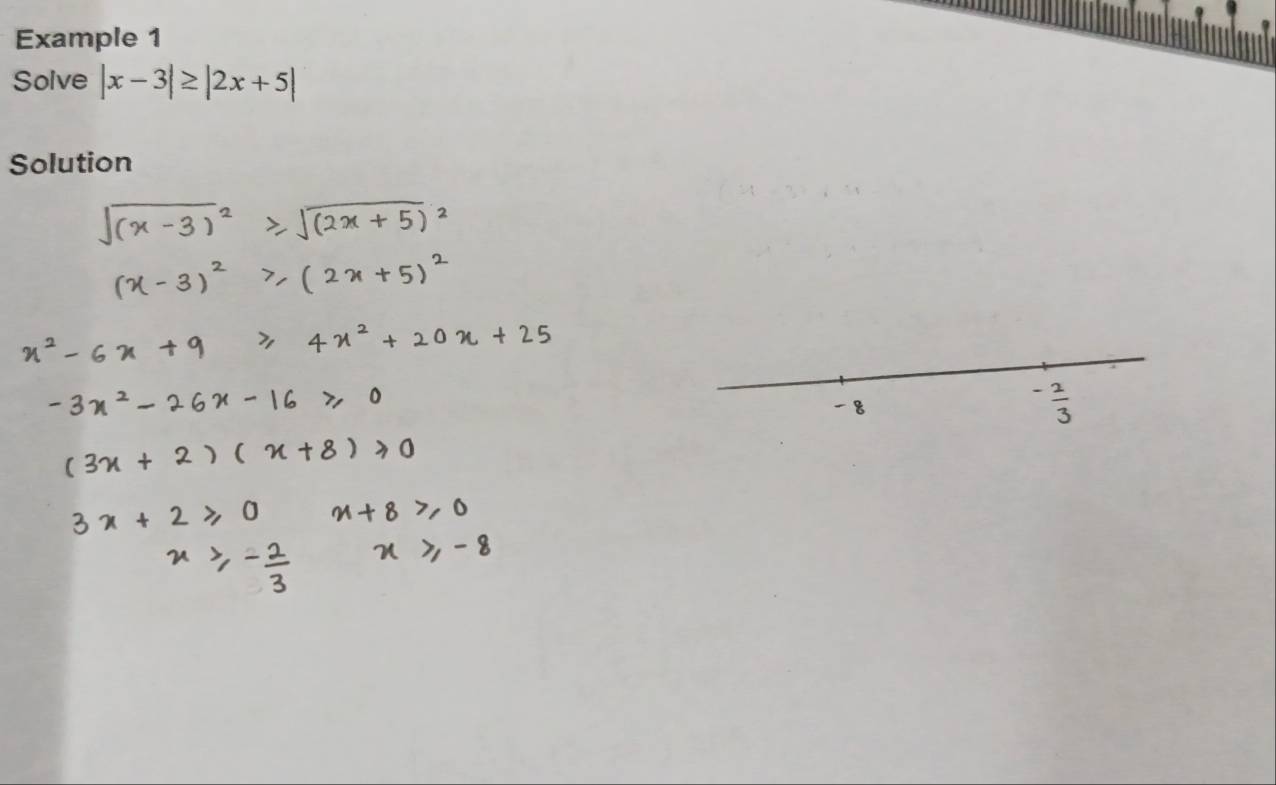 Example 1
Solve |x − 3| ≥ |2x + 5|
Solution
√(x − 3)² ≥ √(2x + 5)²
(x − 3)² ≥ (2x + 5)²
x² − 6x + 9 ≥ 4x² + 20x + 25
−3x² − 26x − 16 ≥ 0
(3x + 2)(x + 8) ≥ 0
3x + 2 ≥ 0 x + 8 ≥ 0
x ≥ −2/3 x ≥ −8
−8 −2/3